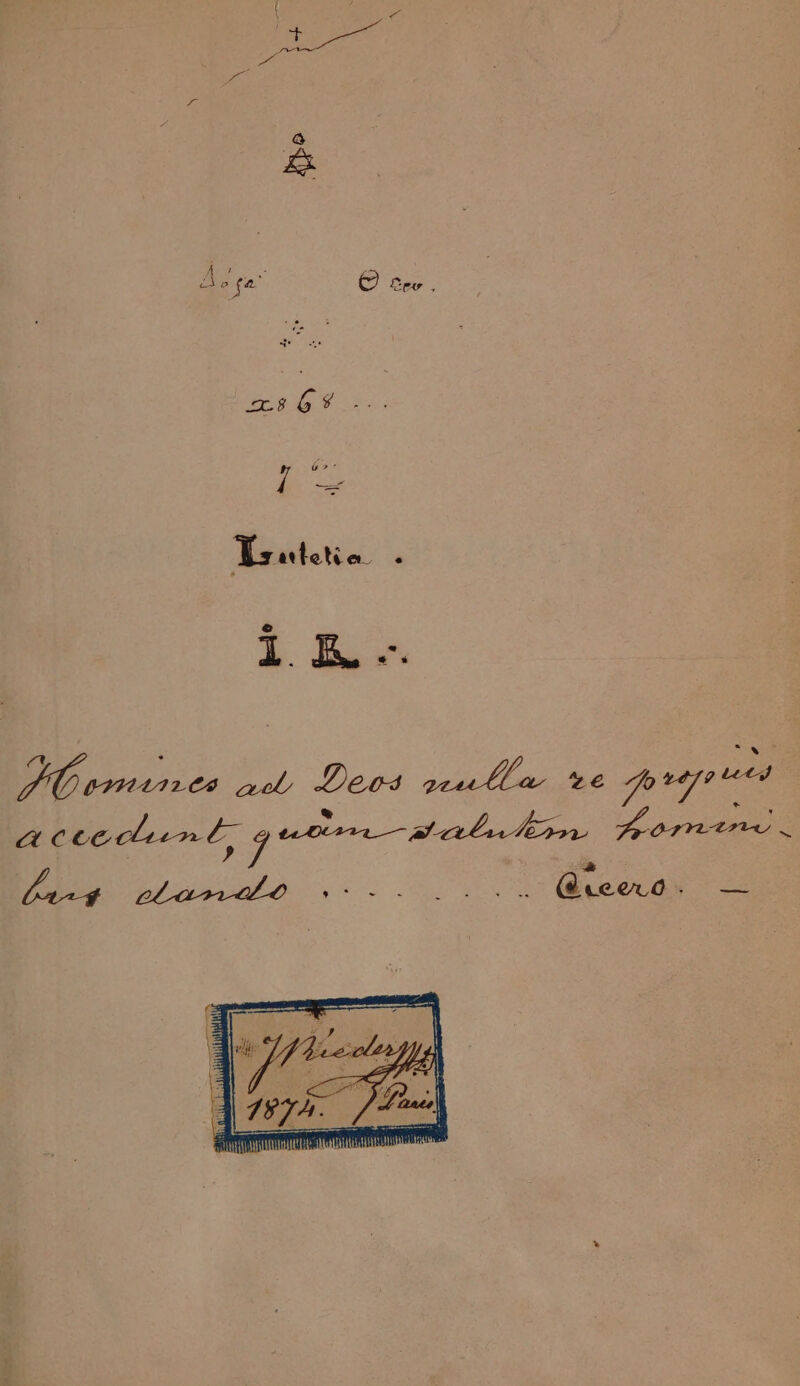 Å
Δοξα Θεω.
1868...
Lutetia.
I. R ∴
Homines ad Deos nulla re propius
accedunt, quàm salutem homini_
bus dando ......... Cicero. —
1874. Paris